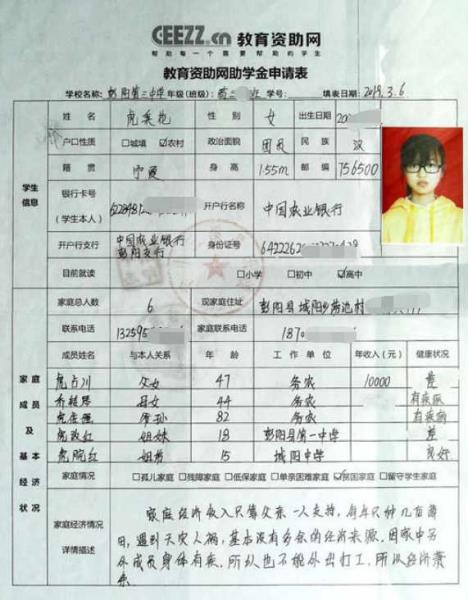 CEEZZ.cn 教育资助网
帮助每一个需要帮助的学生
教育资助网助学金申请表
学校名称: 彭阳第二中学 年级(班级): 学号: 填表日期: 2019.3.6
姓名 性别 女 出生日期
户口性质 □城镇 ☑农村 政治面貌 团员 民族 汉
籍贯 宁夏 身高 155m 邮编 756500
学生信息
银行卡号 (学生本人) 开户行名称 中国农业银行
开户行支行 中国农业银行彭阳支行 身份证号
目前就读 □小学 □初中 ☑高中
家庭总人数 6 现家庭住址 彭阳县城阳乡
联系电话 13259 家庭联系电话 1870
成员姓名 与本人关系 年龄 工作单位 年收入(元) 健康状况
父女 47 务农 10000 差
母女 44 务农 有疾病
82 务农 有疾病
姐妹 18 彭阳县第一中学 差
姐弟 15 城阳中学 良好
家庭成员及基本经济状况
家庭情况 □孤儿家庭 □残障家庭 □低保家庭 □单亲困难家庭 ☑贫困家庭 □留守学生家庭
家庭经济情况详情描述
家庭经济收入只靠父亲一人支持,每年只种几亩薄
田,遇到天灾人祸,基本没有多余的经济来源,因家中另
外成员身体有疾,所以也不能外出打工,所以经济萧
条